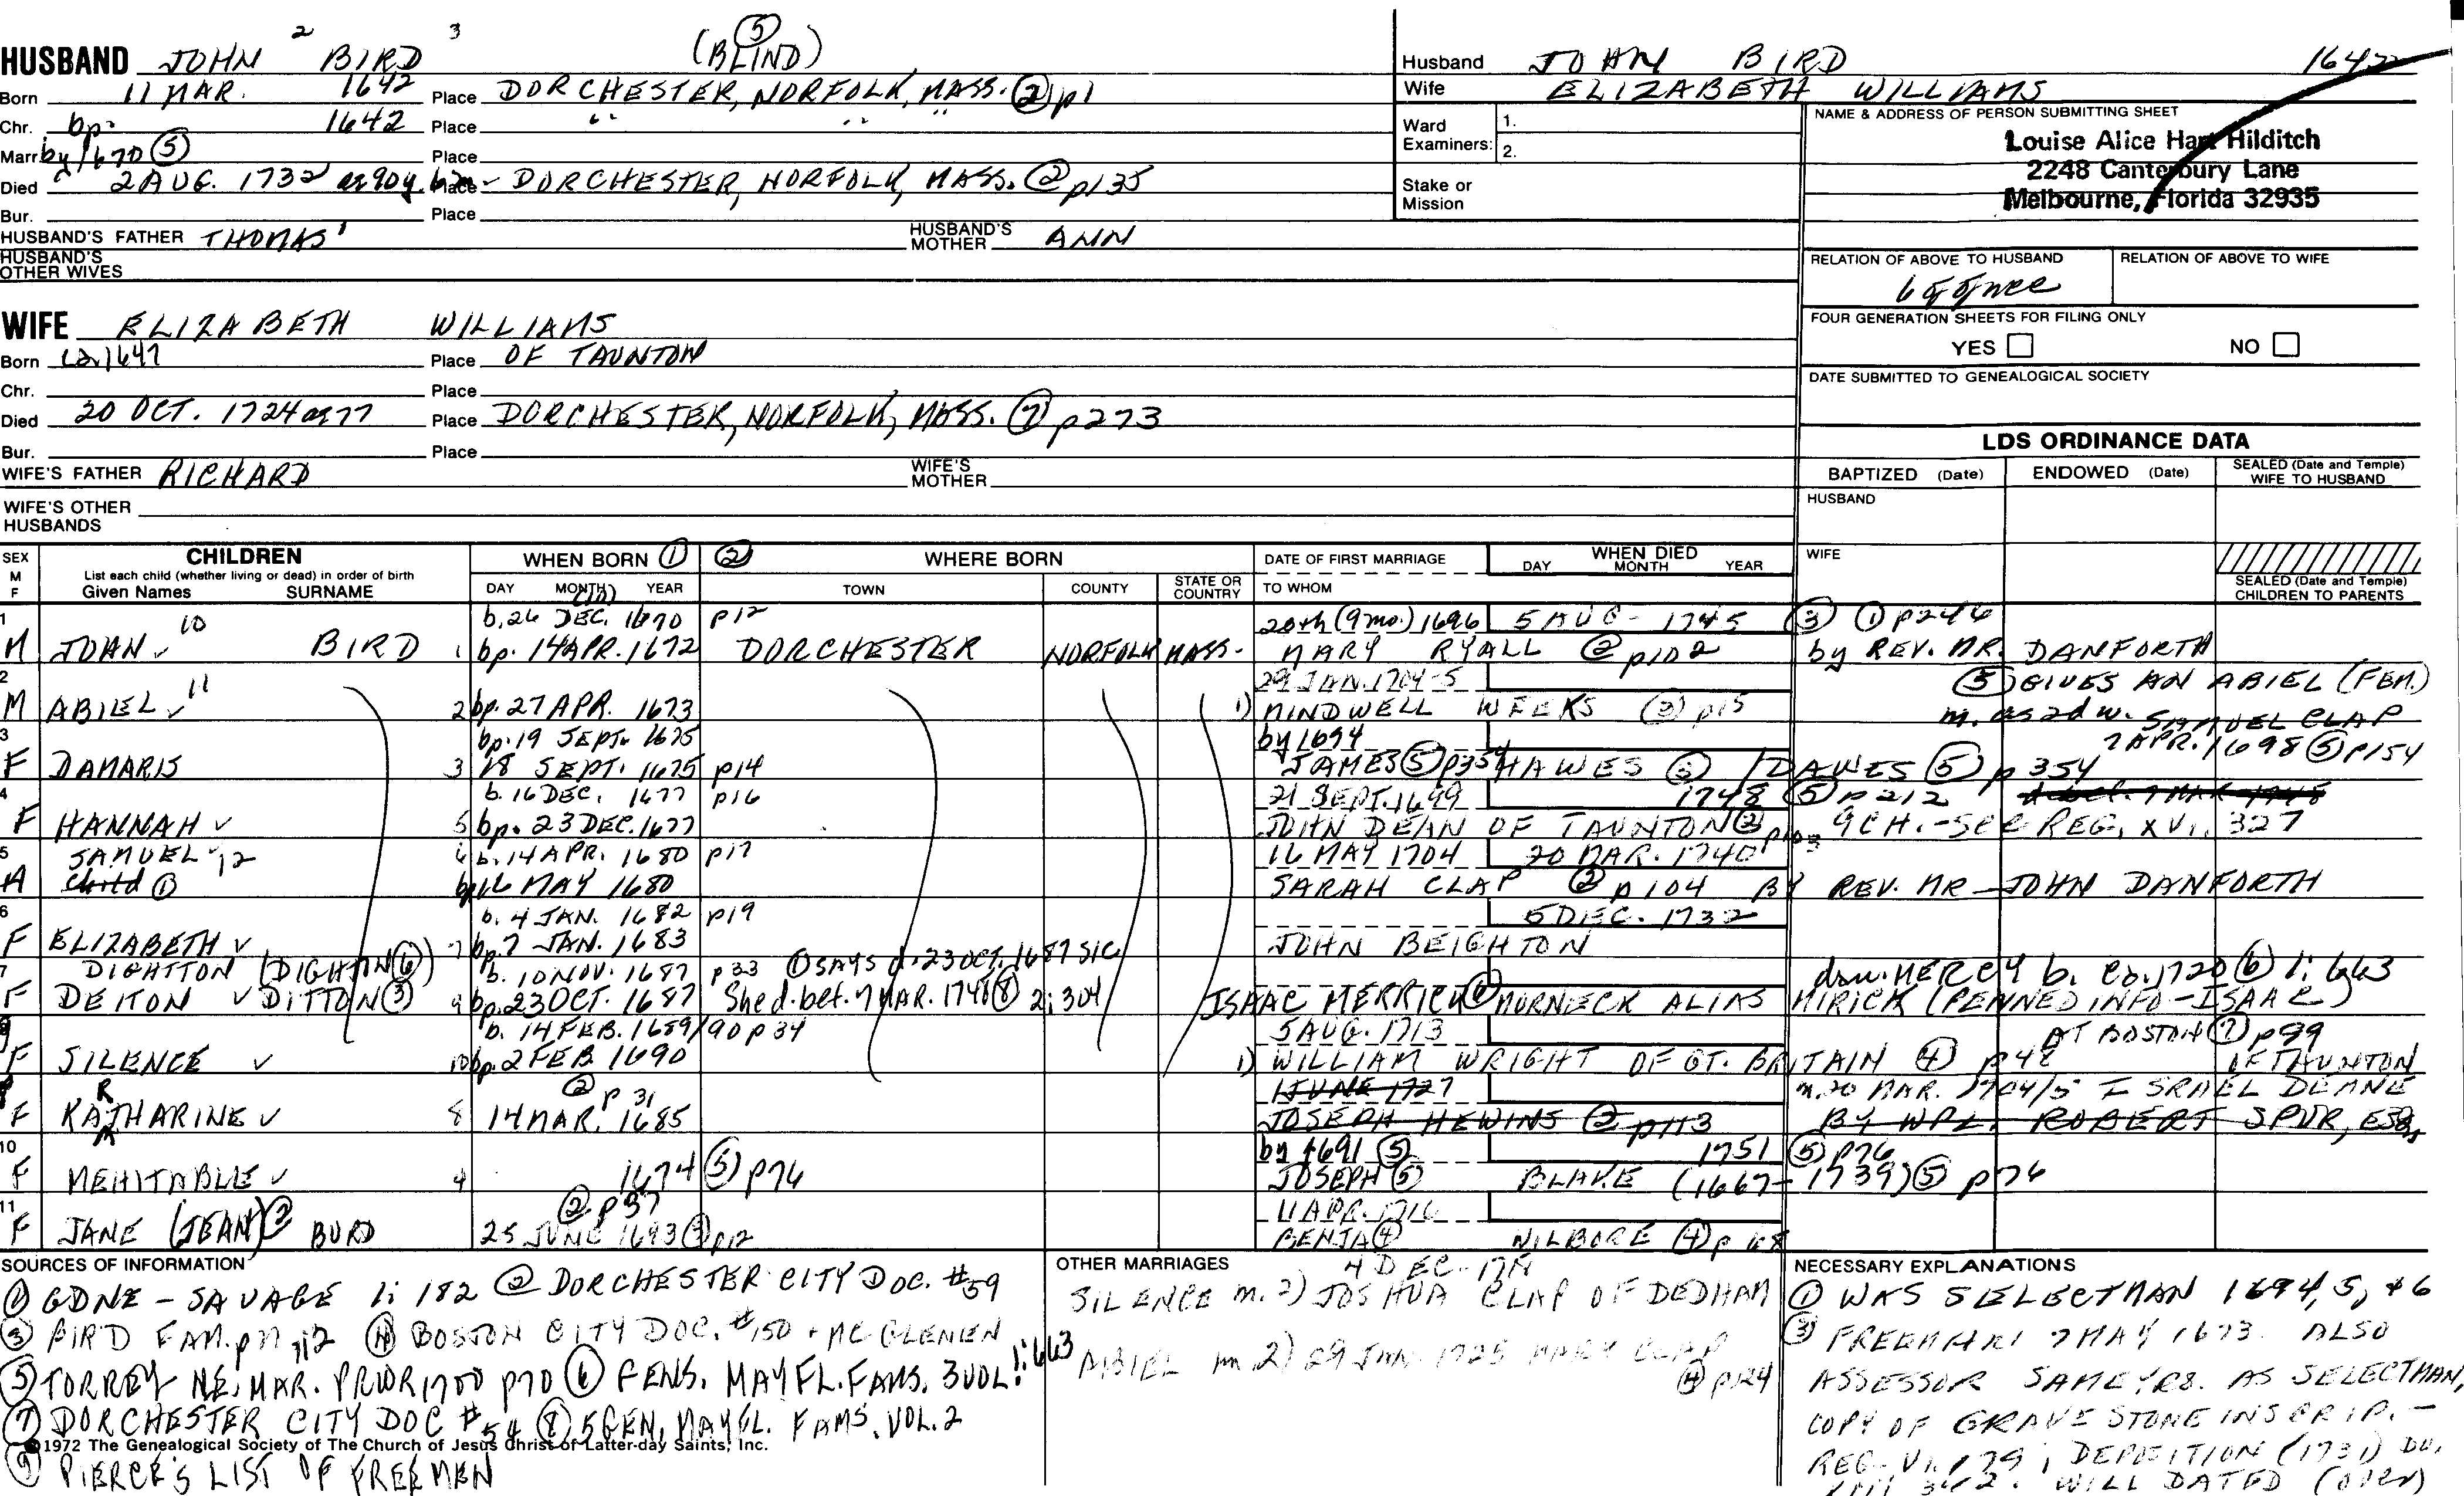 2 3 (5)
HUSBAND JOHN BIRD (BLIND)
Born 11 MAR. 1642 Place DORCHESTER, NORFOLK, MASS. (2) p1
Chr. bp. 1642 Place " " "
Marr. by 1670 (5) Place
Died 2 AUG. 1732 ae 90y. Place DORCHESTER, NORFOLK, MASS. (2) p135
Bur. Place
HUSBAND'S FATHER THOMAS' HUSBAND'S MOTHER ANN
HUSBAND'S OTHER WIVES
WIFE ELIZABETH WILLIAMS
Born ca. 1647 Place OF TAUNTON
Chr. Place
Died 20 OCT. 1724 ae 77 Place DORCHESTER, NORFOLK, MASS. (7) p273
Bur. Place
WIFE'S FATHER RICHARD WIFE'S MOTHER
WIFE'S OTHER HUSBANDS
Husband JOHN BIRD 1642
Wife ELIZABETH WILLIAMS
Ward Examiners: 1. 2.
Stake or Mission
NAME & ADDRESS OF PERSON SUBMITTING SHEET
Louise Alice Hart Hilditch
2248 Canterbury Lane
Melbourne, Florida 32935
RELATION OF ABOVE TO HUSBAND RELATION OF ABOVE TO WIFE
FOUR GENERATION SHEETS FOR FILING ONLY
YES NO
DATE SUBMITTED TO GENEALOGICAL SOCIETY
LDS ORDINANCE DATA
BAPTIZED (Date) ENDOWED (Date) SEALED (Date and Temple) WIFE TO HUSBAND
HUSBAND
WIFE
SEALED (Date and Temple) CHILDREN TO PARENTS
SEX M F CHILDREN WHEN BORN (1) (2) WHERE BORN DATE OF FIRST MARRIAGE WHEN DIED
List each child (whether living or dead) in order of birth
Given Names SURNAME DAY MONTH YEAR TOWN COUNTY STATE OR COUNTRY TO WHOM DAY MONTH YEAR
1 10 b. 26 DEC. 1670 p12 20th (9 mo.) 1696 5 AUG. 1745 (3) (1) p244
M JOHN BIRD 1 bp. 14 APR. 1672 DORCHESTER NORFOLK MASS. MARY RYALL (2) p102 by REV. MR. DANFORTH
2 11 29 JAN. 1704-5 (5) GIVES AN ABIEL (FEM.)
M ABIEL 2 bp. 27 APR. 1673 1) MINDWELL WEEKS (3) p15 m. as 2d w. SAMUEL CLAP
3 bp. 19 SEPT. 1675 by 1694 7 APR. 1698 (5) p154
F DAMARIS 3 18 SEPT. 1675 p14 JAMES (5) p354 HAWES / DAWES (5) p 354
4 b. 16 DEC. 1677 p16 21 SEPT. 1699 1748 (5) p212
F HANNAH 5 bp. 23 DEC. 1677 JOHN DEAN OF TAUNTON (2) 9 CH. - SEE REG, XVI, 327
5 SAMUEL 12 6 b. 14 APR. 1680 p17 16 MAY 1704 20 MAR. 1740
M Child (1) bp. 16 MAY 1680 SARAH CLAP (2) p104 BY REV. MR JOHN DANFORTH
6 b. 4 JAN. 1682 p19 5 DEC. 1732
F ELIZABETH 7 bp. 7 JAN. 1683 JOHN BEIGHTON
7 DIGHTTON (DIGHTON (6)) b. 10 NOV. 1687 p33 (1) SAYS d. 23 OCT. 1687 SIC dau. MERCY b. ca. 1720 (6) 1: 663
F DEITON DITTON (3) 9 bp. 23 OCT. 1687 She d. bef. 7 MAR. 1748 (8) 2:304 ISAAC MERRICK (6) MORNECK ALIAS MIRICK (PENNED INFO-ISAAC)
b. 14 FEB. 1689/90 p34 5 AUG. 1713 AT BOSTON (7) p99
F SILENCE 10 bp. 2 FEB 1690 1) WILLIAM WRIGHT OF GT. BRITAIN (4) p48 OF TAUNTON
(2) p 31 1 JUNE 1727 m. 20 MAR. 1704/5 ISRAEL DEANE
F KATHARINE 8 14 MAR. 1685 JOSEPH HEWINS (2) p113 BY ROBERT SPUR, ESQ.
10 by 1691 (5) 1751 (5) p76
F MEHITABLE 4 1674 (5) p76 JOSEPH (5) BLAKE (1667-1739) (5) p76
11 (2) p37 11 APR. 1716
F JANE (JEAN) (2) BURD 25 JUNE 1693 (3) p12 BENJA (4) WILBORE (4)
SOURCES OF INFORMATION
(1) GDNE - SAVAGE 1: 182 (2) DORCHESTER CITY DOC. #59
(3) BIRD FAM. p 11, 12 (4) BOSTON CITY DOC. #150 + MC GLENEN
(5) TORREY N.E. MAR. PRIOR 1700 p70 (6) GENS. MAYFL. FAMS. 3 VOL. 1:663
(7) DORCHESTER CITY DOC #54 (8) 5 GEN, MAYFL. FAMS. VOL. 2
©1972 The Genealogical Society of The Church of Jesus Christ of Latter-day Saints, Inc.
(9) PIERCE'S LIST OF FREEMEN
OTHER MARRIAGES
4 DEC.
SILENCE m. 2) JOSHUA CLAP OF DEDHAM
ABIEL m 2) 29 JAN. 1725 MARY CLAP
(4) p124
NECESSARY EXPLANATIONS
(1) WAS SELECTMAN 1694, 5, + 6
(3) FREEMAN 7 MAY 1673. ALSO
ASSESSOR SAME YRS. AS SELECTMAN,
COPY OF GRAVE STONE INSCRIP. -
REG. VI, 179; DEPOSITION (1731) DO,
342. WILL DATED